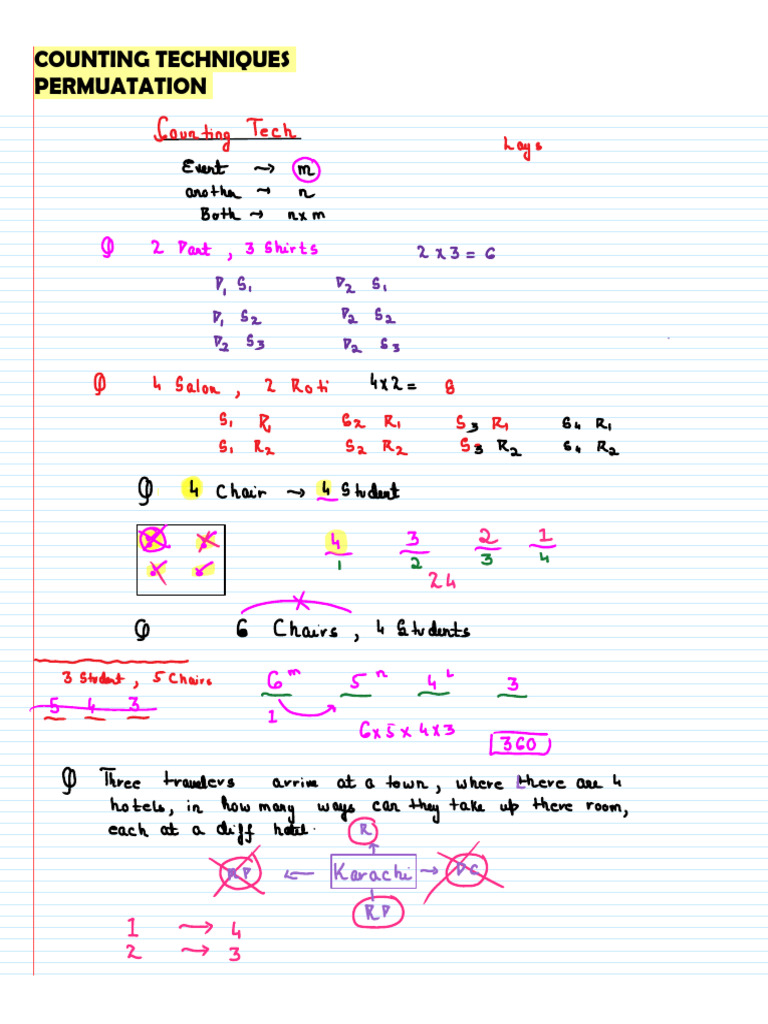 COUNTING TECHNIQUES
PERMUATATION
Counting Tech
Lays
Event → m
another → n
Both → n×m
Q 2 Pant , 3 Shirts 2 × 3 = 6
P1 S1 P2 S1
P1 S2 P2 S2
P2 S3 P2 S3
Q 4 Salon , 2 Roti 4×2 = 8
S1 R1 S2 R1 S3 R1 S4 R1
S1 R2 S2 R2 S3 R2 S4 R2
Q 4 Chair → 4 Student
4 3 2 1
1 2 3 4
24
Q 6 Chairs , 4 Students
3 Student , 5 Chairs
5 4 3
6 m 5 n 4 L 3
1
6×5×4×3
360
Q Three travelers arrive at a town, where there are 4
hotels, in how many ways can they take up there room,
each at a diff hotel.
R
Karachi
PC
RP
1 → 4
2 → 3